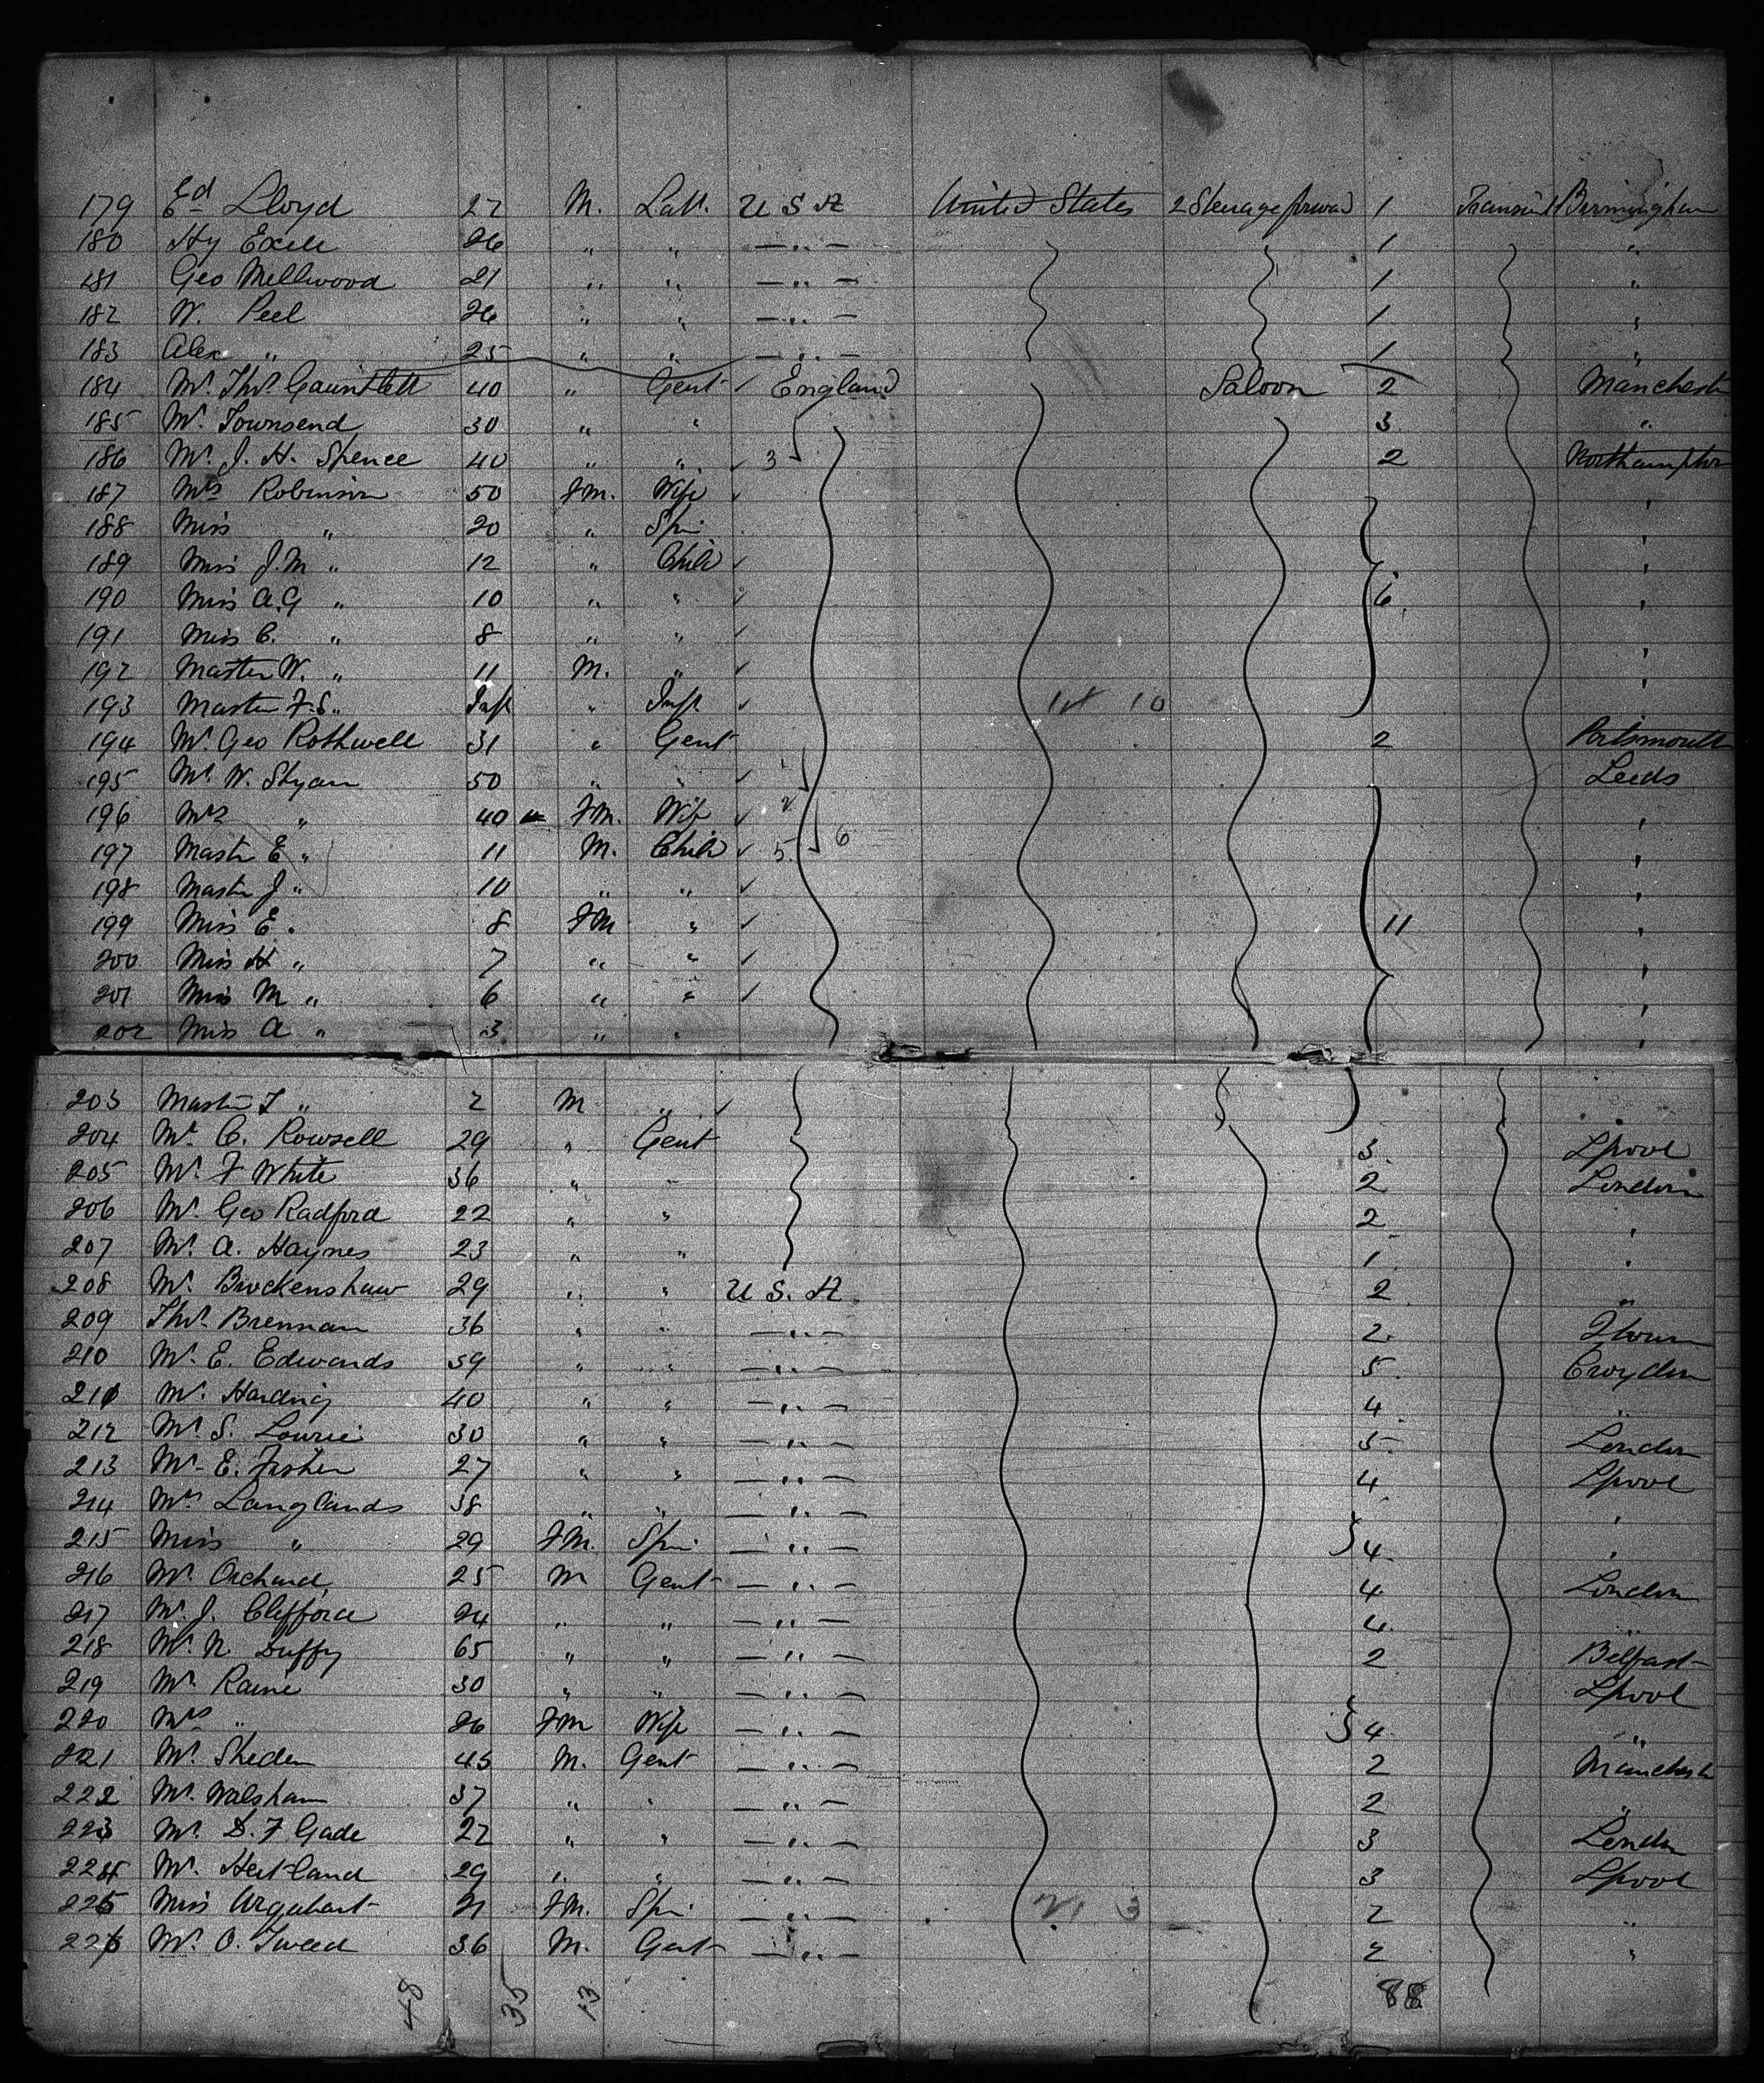 179 Ed Lloyd 27 M. Lab. U S A United States 2 Steerage forward 1 Transient Birmingham
180 Hy Exell 26 " " — " — 1 "
181 Geo Mellwood 21 " " — " — 1 "
182 W. Peel 26 " " — " — 1 "
183 Alex " 25 " " — " — 1 "
184 Mr. Thos. Gauntlett 40 " Gent England Saloon 2 Manchester
185 Mr. Townsend 30 " " 3 "
186 Mr. J. H. Spence 40 " " 3 2 Northampton
187 Mrs Robinson 50 FM. Wife "
188 Miss " 20 " Spin "
189 Miss J. M " 12 " Child "
190 Miss A. G " 10 " " 6 "
191 Miss C. " 8 " " "
192 Master W. " 11 M. " "
193 Master F. S. " Inft " Inft 10 "
194 Mr. Geo Rothwell 31 " Gent 2 Portsmouth
195 Mr. W. Styan 50 " " Leeds
196 Mrs " 40 FM. Wife "
197 Master E " 11 M. Child 5 6 "
198 Master J " 10 " " "
199 Miss E. " 8 FM " 11 "
200 Miss H " 7 " " "
201 Miss M " 6 " " "
202 Miss A " 3 " " "
203 Master F " 2 M " "
204 Mr. C. Rowsell 29 " Gent 3 Lpool
205 Mr. F White 36 " " 2 London
206 Mr. Geo Radford 22 " " 2 "
207 Mr. A. Haynes 23 " " 1 "
208 Mr. Brockenshaw 29 " " U S. A 2 "
209 Thos. Brennan 36 " " — " — 2
210 Mr. E. Edwards 39 " " — " — 5 Croydon
211 Mr. Harding 40 " " — " — 4 "
212 Mr. S. Lowrie 30 " " — " — 5 London
213 Mr. E. Fisher 27 " " — " — 4 Lpool
214 Mr. Langlands 38 " " — " — "
215 Miss " 29 FM. Spin — " — 4 "
216 Mr. Orchard 25 M Gent — " — 4 London
217 Mr. J. Clifford 24 " " — " — 4 "
218 Mr. N. Duffy 65 " " — " — 2 Belfast
219 Mr. Raine 30 " " — " — Lpool
220 Mrs " 26 FM Wife — " — 4 "
221 Mr. Sheden 45 M. Gent — " — 2 Manchester
222 Mr. Walsham 37 " " — " — 2 "
223 Mr. D. F Gade 22 " " — " — 3 London
224 Mr. Heitland 29 " " — " — 3 Lpool
225 Miss Urquhart 21 FM. Spin — " — 3 2 "
226 Mr. O. Tweed 36 M. Gent — " — 2 "
48 35 13 88